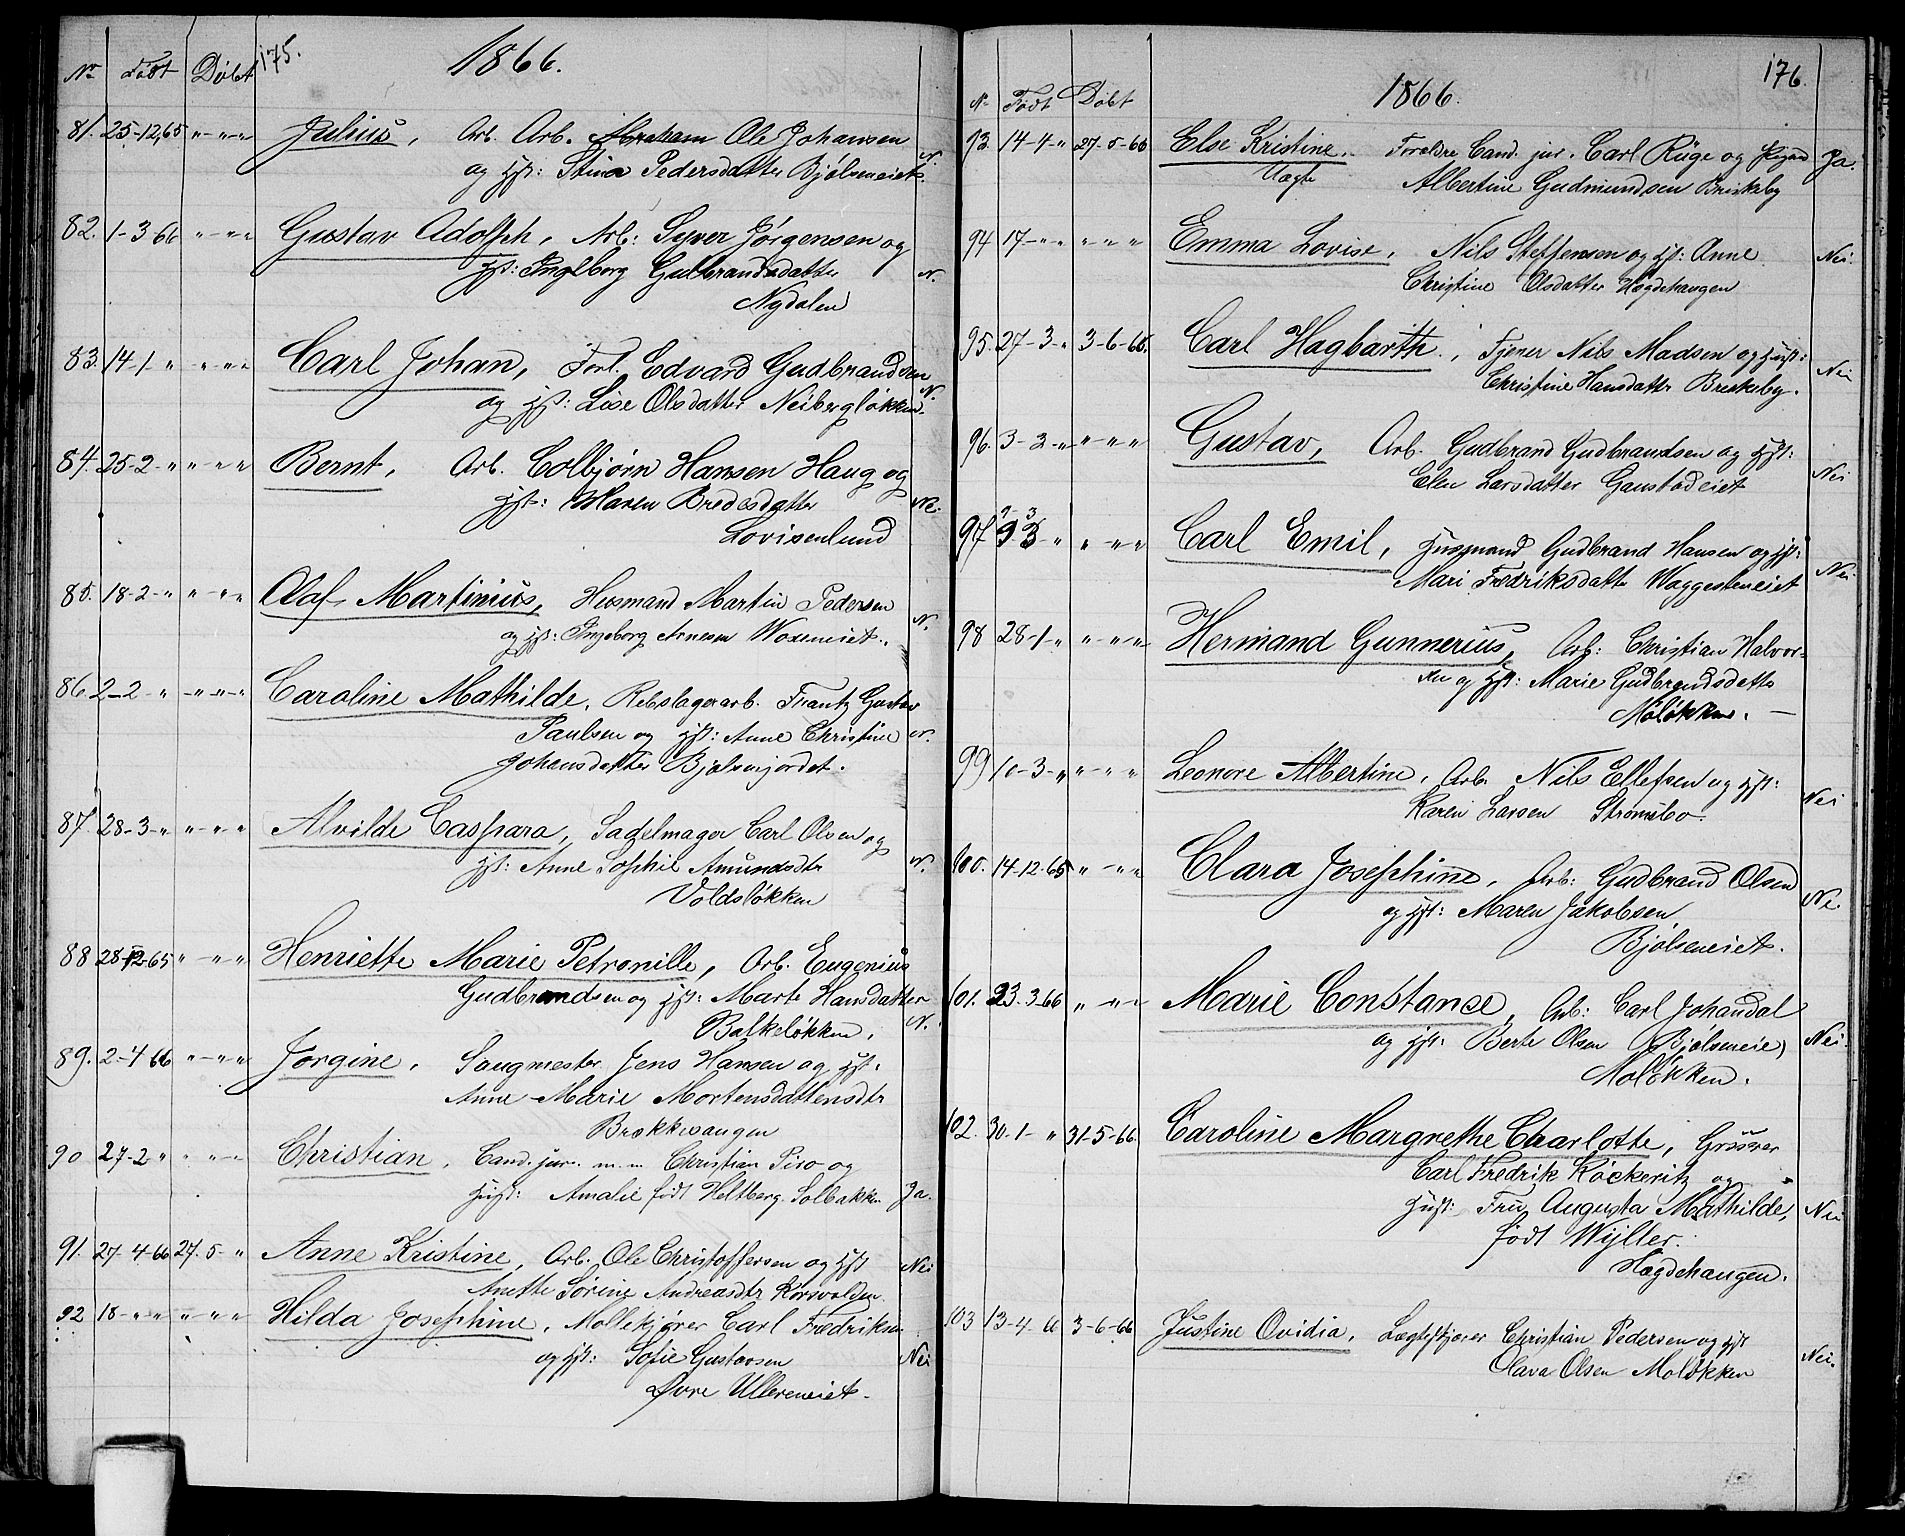 175.
1866.
No Født Døbt
81. 25-12,65 " - " - " Julius, Arb. Arb. Abraham Ole Johansen
og Hst: Stina Pedersdatter Bjølseneiet. N.
82. 1-3-66 " - " " Gustav Adolph, Arb: Syver Jørgensen og
Hst: Ingeborg Gulbrandsdatter N.
Nydalen
83. 14-1 " " - " " Carl Johan, Forl. Edvard Gudbrandsen
og Hst: Lise Olsdatter Neibergløkken. N.
84. 25-2-" " " " Bernt, Arb. Colbjørn Hansen Haug og
Hst: Maren Bredesdatter Nei.
Lovisenlund
85. 18-2-" " - " " Olaf Martinius, Husmand Martin Pedersen
og Hst: Ingeborg Arnesen Woxeneiet. N.
86. 2-2 - " " - " - " Caroline Mathilde, Rebslagerarb. Frantz Gustav
Paulsen og Hst: Anne Christine N.
Johansdatter Bjølsenjordet.
87 28-3-" " - " " Alvilde Caspara, Sadelmager Carl Olsen og
Hst: Anne Sophie Amundsdtr N.
Voldsløkken
88 28-12-65 " - " " Henriette Marie Petronille, Arb. Eugenius
Gudbrandsen og Hst: Marte Hansdatter
Balkeløkken. N.
89. 2-4 66 " - " " Jørgine, Saugmester Jens Hansen og Hst.
Anne Marie Mortensdattensdtr
Brekkevangen
90 27-2 " " " - " Christian, Cand. jur. m. m. Christian Piro og
Hust: Amalie født Heltberg. Solbakken Ja.
91. 27-4-66 27-5-" Anne Kristine, Arb. Ole Christoffersen og Hst
Anette Sørine Andreasdtr Korsvolden. Nei
92 18-"-" " - " " Hilda Josephine, Møllekjører Carl Fredriksen
og Hst: Sofie Gustavsen Nei
Øvre Ullereneiet.
176.
1866.
No Født Døbt
93. 14-4-" 27-5-66 Else Kristine. Forældre Cand. jur. Carl Rüge og Pigen Ja.
Uægte Albertine Gudmundsen Briskeby
94 17-"-" " " " Emma Lovise, Nils Steffensen og Hst: Anne Nei.
Christine Olsdatter Hægdehaugen
95. 27-3-" 3-6-66. Carl Hagbarth, Tjener Nils Madsen og Hust:
Christine Hansdatter Breskeby. Nei
96. 3-2-" " - " " Gustav, Arb. Gudbrand Gudbrandsen og Hst:
Elen Larsdatter Gaustadeiet Nei
97 9-3-" " - " " Carl Emil, Husmand Gudbrand Hansen og Hst:
Mari Fredriksdatter Waggesteneiet Nei
98 28-1-" " - " - " Hermand Gunnerius, Arb: Christian Halvor-
sen og Hst: Marie Gudbrandsdatter
Møløkken. —
99 10-3-" " - " " Leonore Albertine, Arb. Nils Ellefsen og Hst:
Karen Larsen Strømsbo. Nei
100. 14-12-65 " - " " Clara Josephine, Arb: Gudbrand Olsen
og Hst: Maren Jakobsen Nei
Bjølseneiet.
101. 23-3-66 " - " " Marie Constance, Arb: Carl Johandal
og Hst: Berte Olsen (Bjølseneie) Nei
Moløkken.
102. 30-1-" 31-5-66. Caroline Margrethe Charlotte, Grosserer
Carl Fredrik Köckeritz og
Hust: Fru Augusta Mathilde, Nei
født Wyller.
Hægdehaugen.
103 13-4-66 3-6-66 Justine Ovidia, Lægtekjører Christian Pedersen og Hst
Clara Olsen Moløkken Nei.